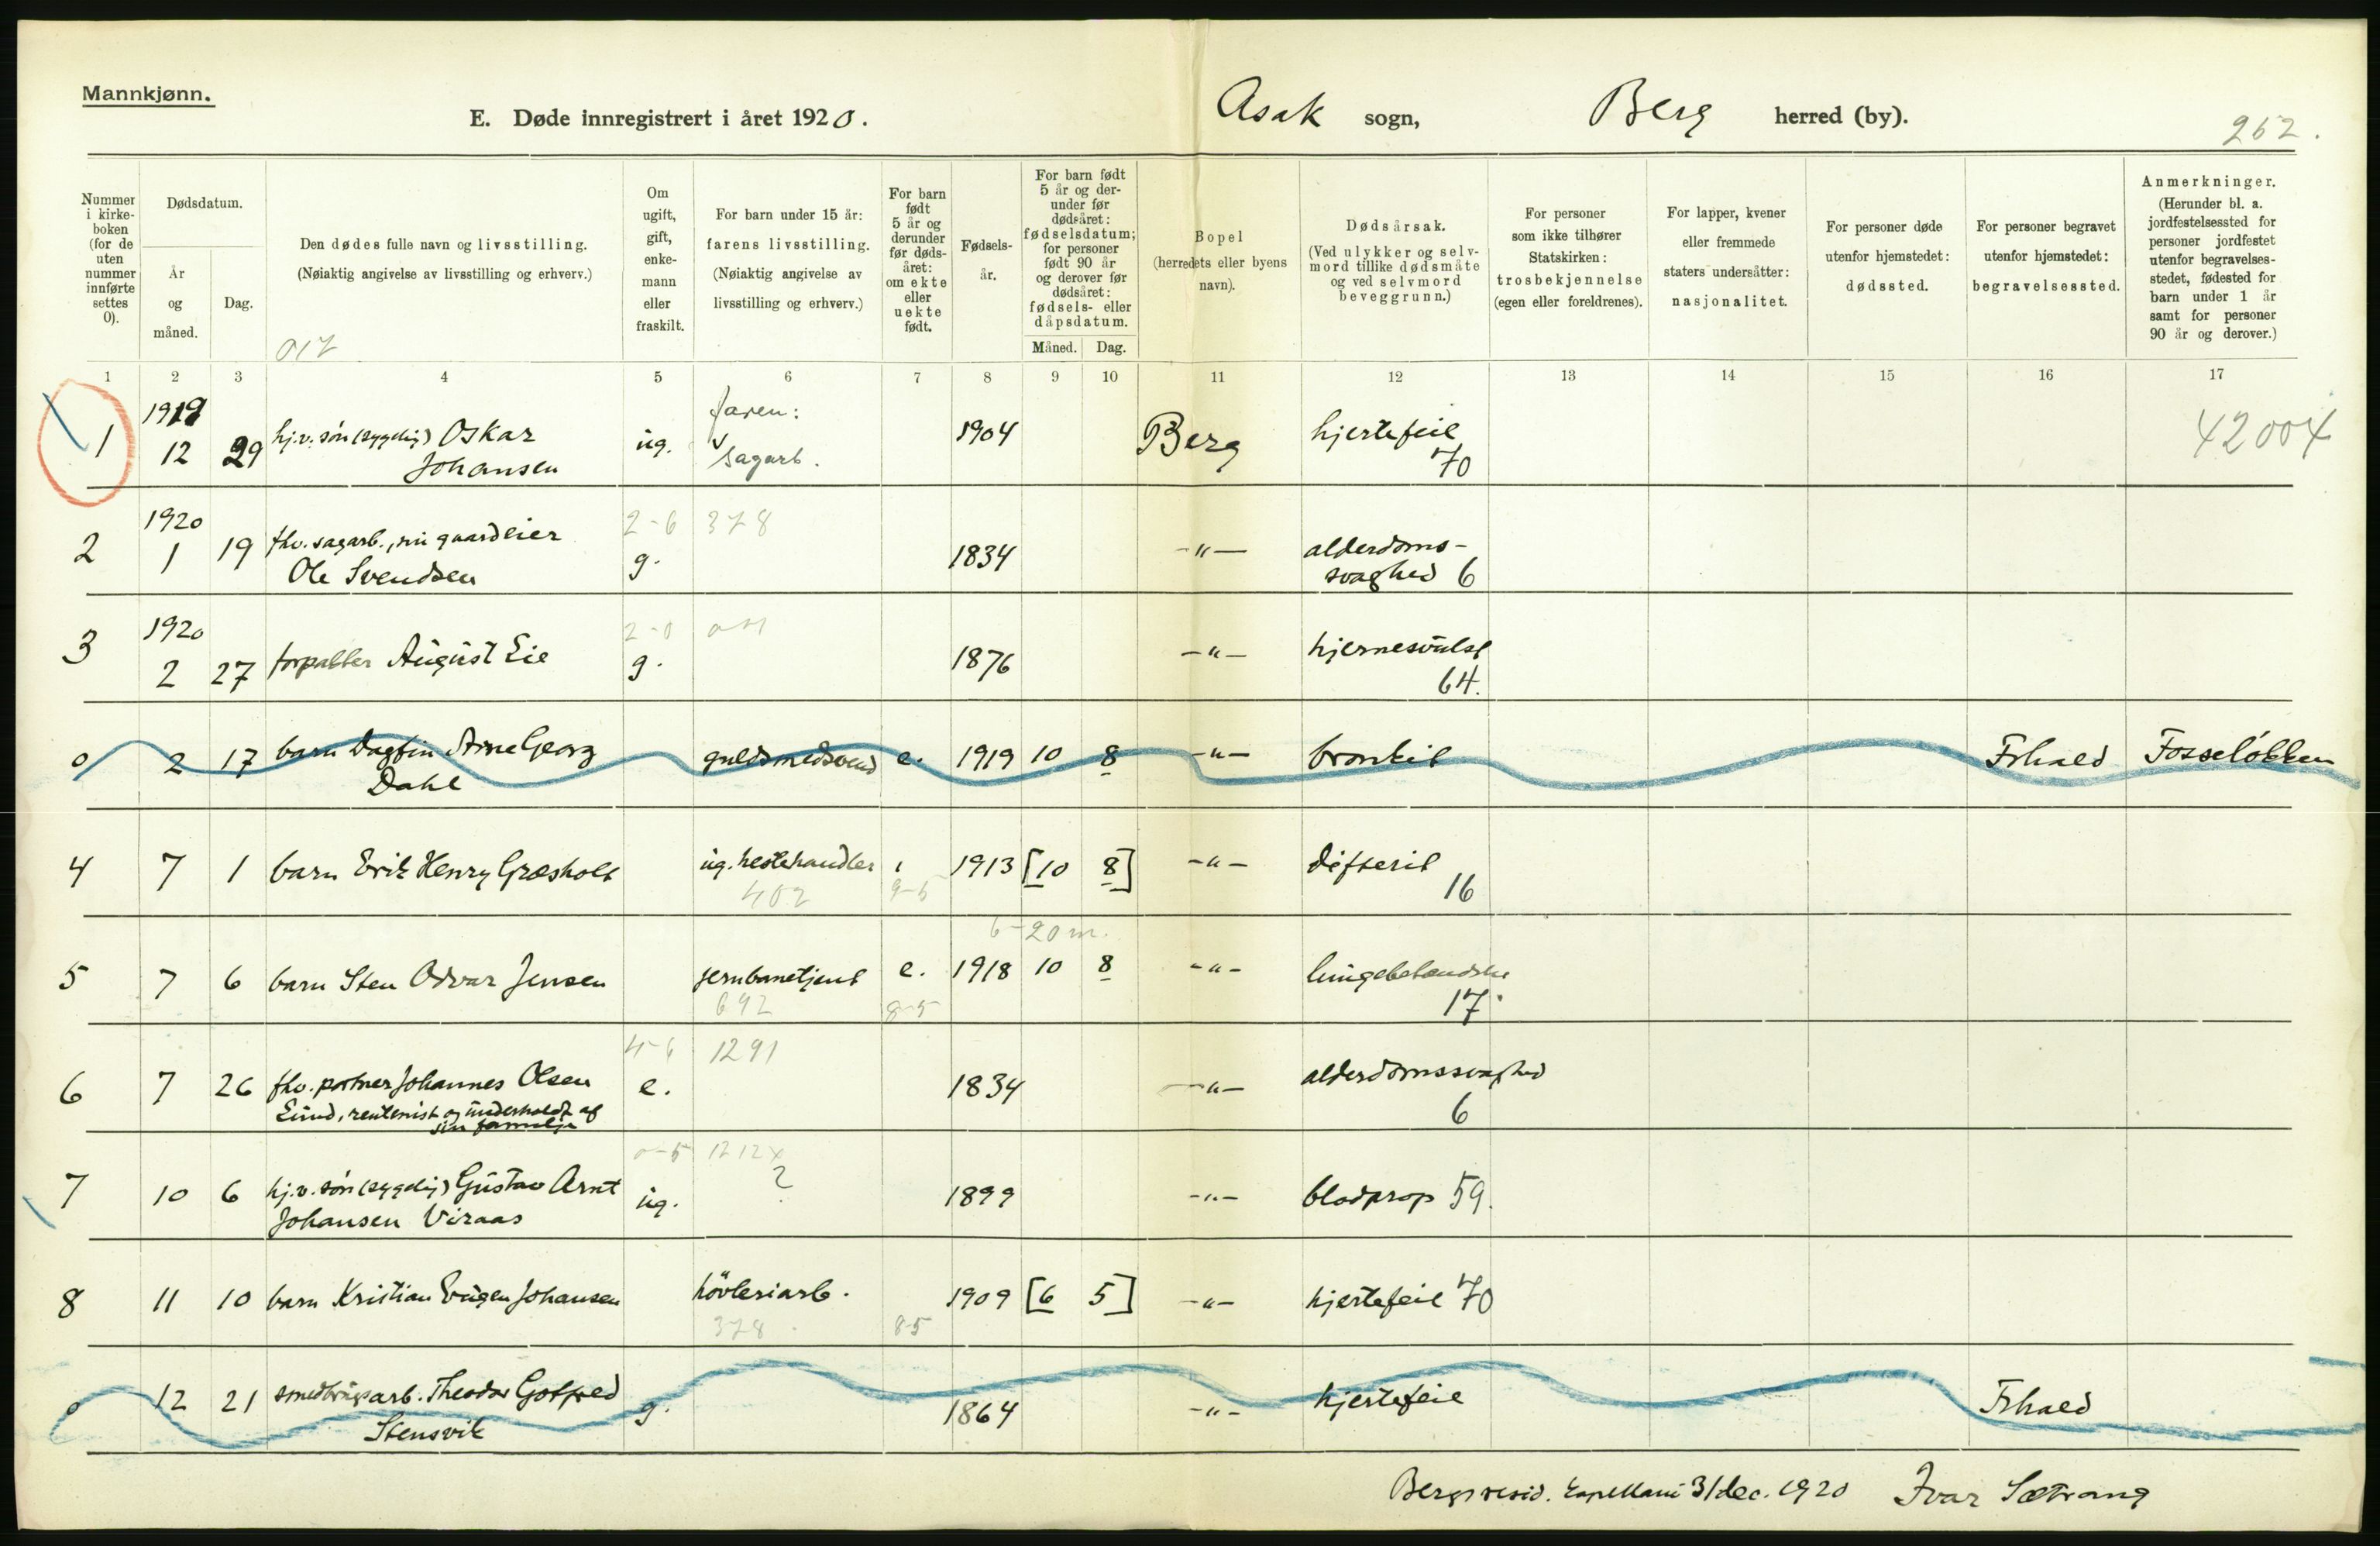 Mannkjønn.
E. Døde innregistrert i året 1920. Asak sogn, Berg herred (by).
252.
Nummer i kirkeboken (for de uten nummer innførte settes 0).
Dødsdatum.
År og måned.
Dag.
Den dødes fulle navn og livsstilling.
(Nøiaktig angivelse av livsstilling og erhverv.)
Om ugift, gift, enkemann eller fraskilt.
For barn under 15 år: farens livsstilling.
(Nøiaktig angivelse av livsstilling og erhverv.)
For barn født 5 år og derunder før dødsåret: om ekte eller uekte født.
Fødselsår.
For barn født 5 år og derunder før dødsåret: fødselsdatum; for personer født 90 år og derover før dødsåret: fødsels- eller dåpsdatum.
Måned. Dag.
Bopel
(herredets eller byens navn).
Dødsårsak.
(Ved ulykker og selvmord tillike dødsmåte og ved selvmord beveggrunn.)
For personer som ikke tilhører Statskirken: trosbekjennelse (egen eller foreldrenes).
For lapper, kvener eller fremmede staters undersåtter: nasjonalitet.
For personer døde utenfor hjemstedet: dødssted.
For personer begravet utenfor hjemstedet: begravelsessted.
Anmerkninger.
(Herunder bl. a. jordfestelsessted for personer jordfestet utenfor begravelsesstedet, fødested for barn under 1 år samt for personer 90 år og derover.)
1 2 3 4 5 6 7 8 9 10 11 12 13 14 15 16 17
1919 faren:
1 12 29 hj.v. søn (sygelig) Oskar ug. sagarb. 1904 Berg hjertefeil 42004
Johansen 70
1920 2-6 378
2 1 19 fhv. sagarb., nu gaardeier g. 1834 -"- alderdoms-
Ole Svendsen svaghed 6
1920 2-0
3 2 27 forpakter August Eie g. 1876 -"- hjernesvulst
64.
0 2 17 barn Dagfin Arne Georg guldsmedsvend e. 1919 10 8 -"- bronkit Frhald Fosseløkken
Dahl
4 7 1 barn Erik Henry Græsholt ug. hestehandler 1913 [10 8] -"- difterit
402 9-5 16
6-20 m.
5 7 6 barn Sten Odvar Jensen jernbanetjent e. 1918 10 8 -"- lungebetændelse
692 8-5 17.
4-6 1291
6 7 26 fhv. portner Johannes Olsen e. 1834 -"- alderdomssvaghed
Lund, rentenist og underholdt af 6
sin familje
0-5 1212x
7 10 6 hj.v. søn (sygelig) Gustav Arnt ug. ? 1899 -"- blodprop 59.
Johansen Viraas
8 11 10 barn Kristian Eugen Johansen høvleriarb. 1909 [6 5] -"- hjertefeil 70
378 8-5
0 12 21 smedbrugsarb. Theodor Gotfred g. 1864 -"- hjertefeil Frhald
Stensvik
Bergs resid. kapellani 31/dec. 1920 Ivar Sætrang